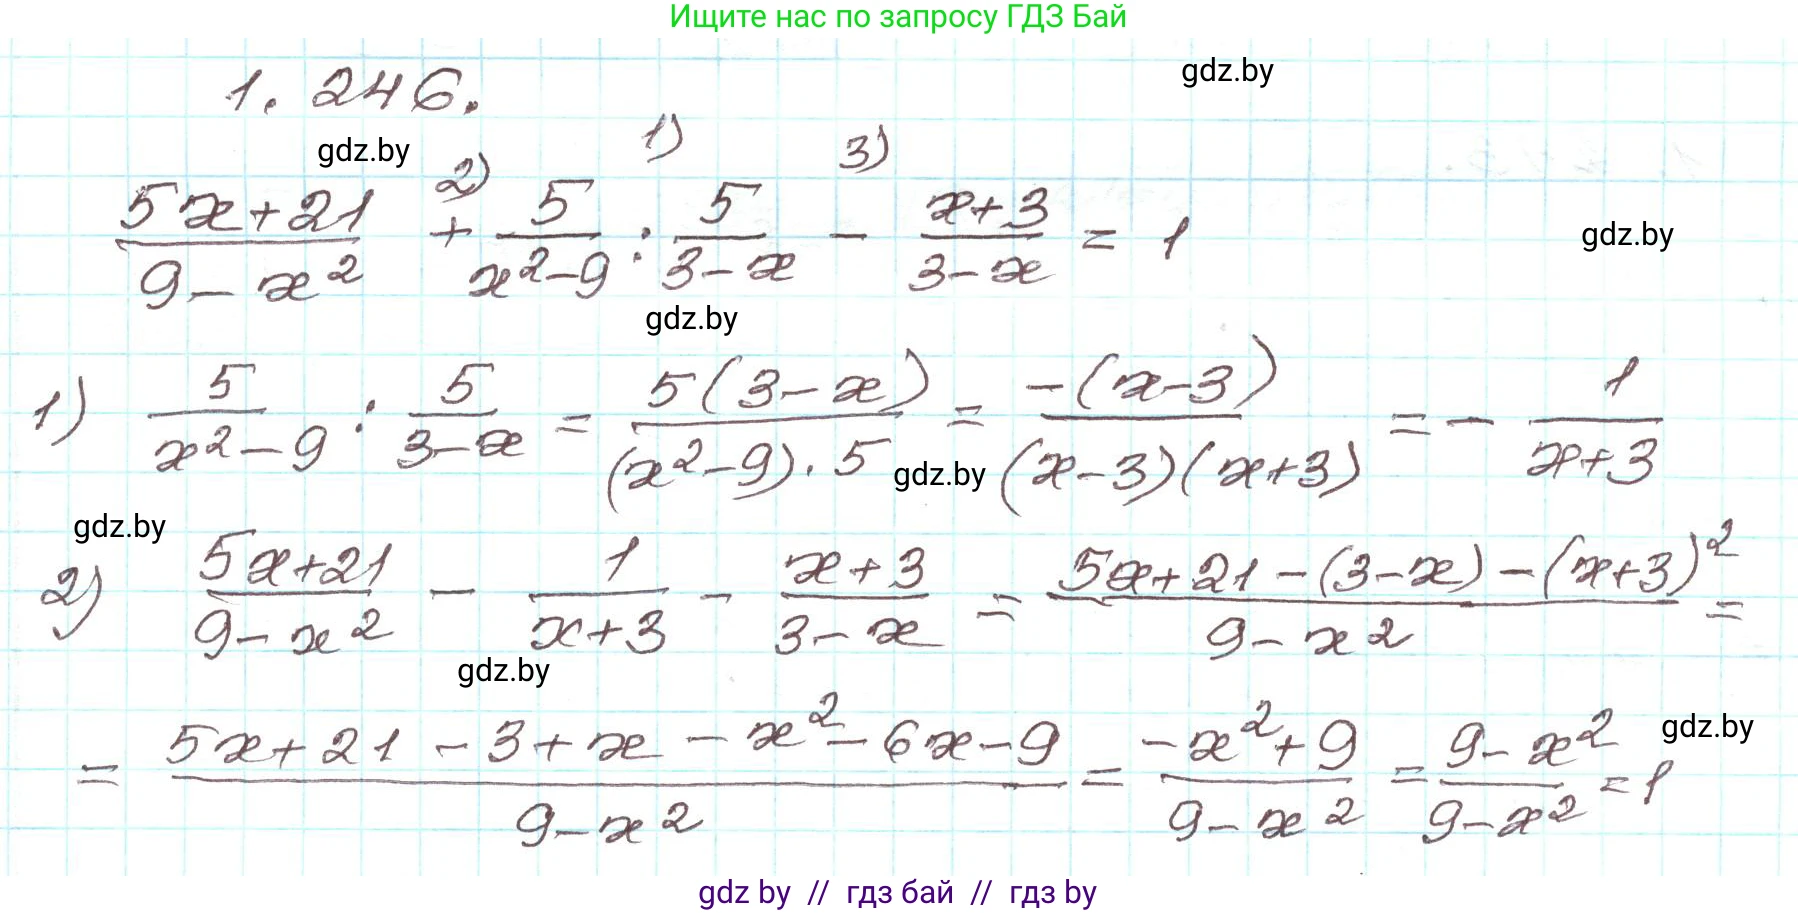 Ищите нас по запросу ГДЗ Бай
1. 246.
gdz.by
gdz.by
1)
2)
3)
(5x+21)/(9-x²) + 5/(x²-9) : 5/(3-x) - (x+3)/(3-x) = 1
gdz.by
gdz.by
1) 5/(x²-9) : 5/(3-x) = 5(3-x)/((x²-9)·5) = -(x-3)/((x-3)(x+3)) = - 1/(x+3)
gdz.by
gdz.by
2) (5x+21)/(9-x²) - 1/(x+3) - (x+3)/(3-x) = (5x+21-(3-x)-(x+3)²)/(9-x²) =
gdz.by
= (5x+21-3+x-x²-6x-9)/(9-x²) = (-x²+9)/(9-x²) = (9-x²)/(9-x²) = 1
gdz.by
gdz by // гдз бай // гдз by